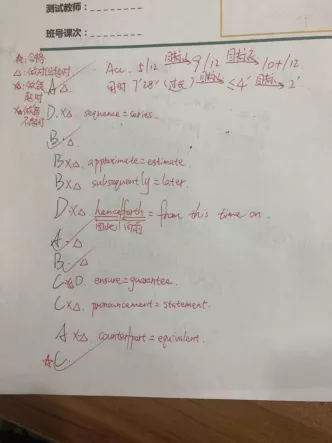 测试教师：
班号课次：
Acc. 5/12 目标1 9/12 目标2 10+/12.
用时 7'28" (过长) 目标1 ≤4' 目标2 2'
A △
D. X△. sequence = series.
B △
B X△. approximate = estimate.
B X△. subsequently = later.
D X△. henceforth = from this time on.
A △
B △
C X D. ensure = guarantee.
C X△. pronouncement = statement.
A X△. counterpart = equivalent.
☆C.